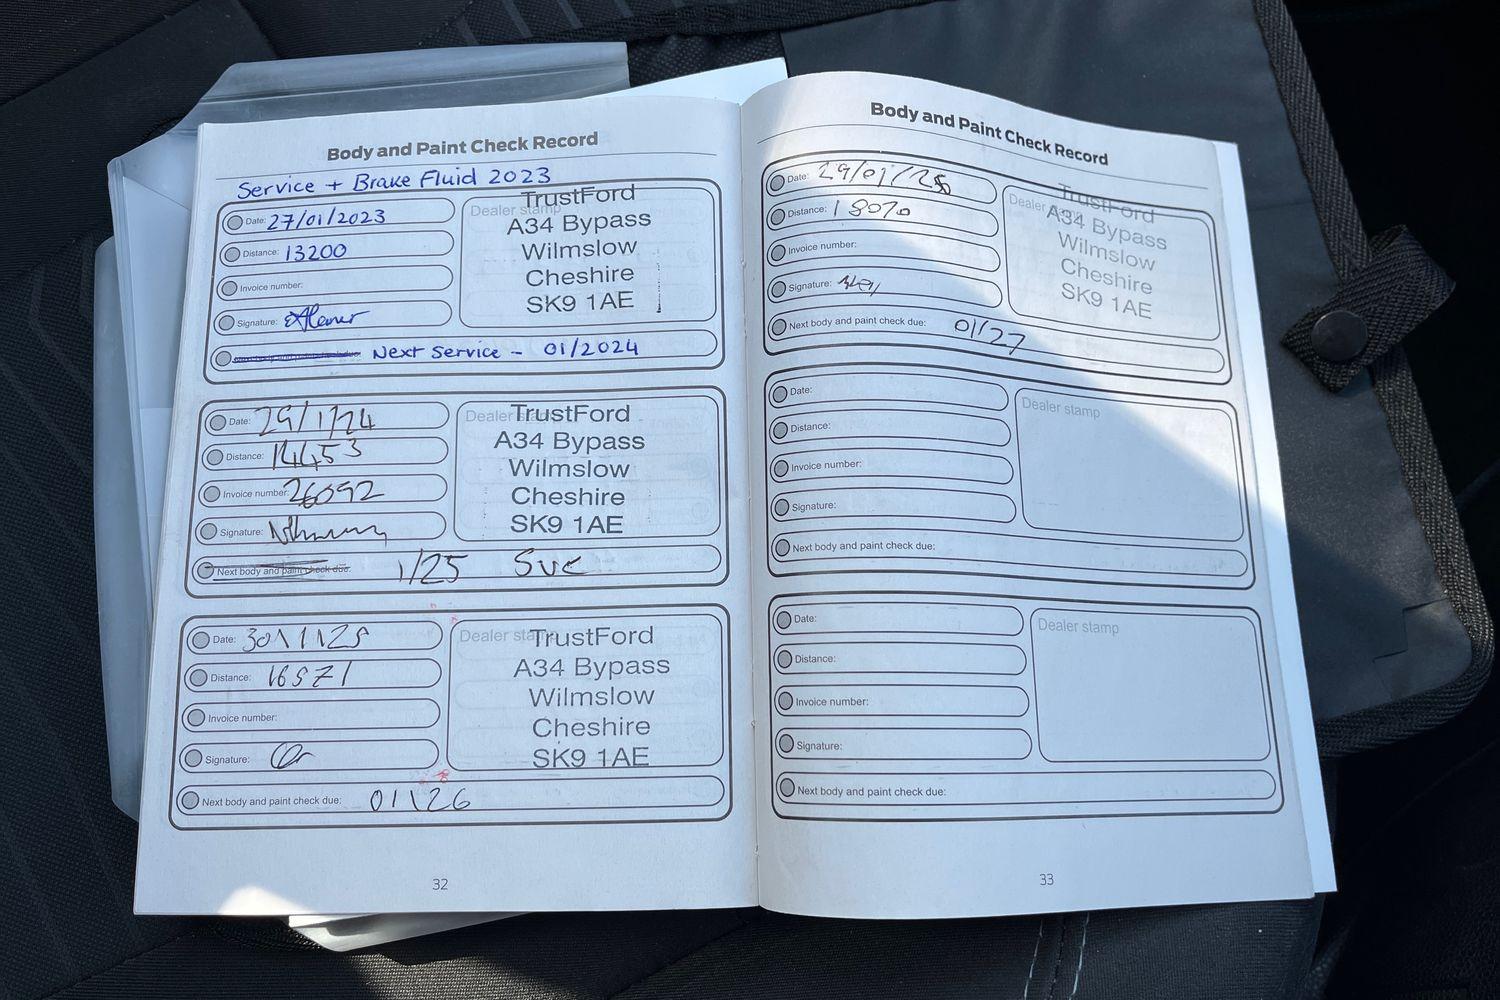 Body and Paint Check Record
Service + Brake Fluid 2023
Date: 27/01/2023
Distance: 13200
Invoice number:
Signature:
Next Service - 01/2024
Dealer stamp
TrustFord
A34 Bypass
Wilmslow
Cheshire
SK9 1AE
Date: 29/1/24
Distance: 14453
Invoice number: 26092
Signature:
Next body and paint check due: 1/25 Svc
Dealer stamp
TrustFord
A34 Bypass
Wilmslow
Cheshire
SK9 1AE
Date: 30\1\25
Distance: 16571
Invoice number:
Signature:
Next body and paint check due: 01\26
Dealer stamp
TrustFord
A34 Bypass
Wilmslow
Cheshire
SK9 1AE
32
Body and Paint Check Record
Date:
Distance: 18070
Invoice number:
Signature:
Next body and paint check due: 01/27
Dealer stamp
TrustFord
A34 Bypass
Wilmslow
Cheshire
SK9 1AE
Date:
Distance:
Invoice number:
Signature:
Next body and paint check due:
Dealer stamp
Date:
Distance:
Invoice number:
Signature:
Next body and paint check due:
Dealer stamp
33